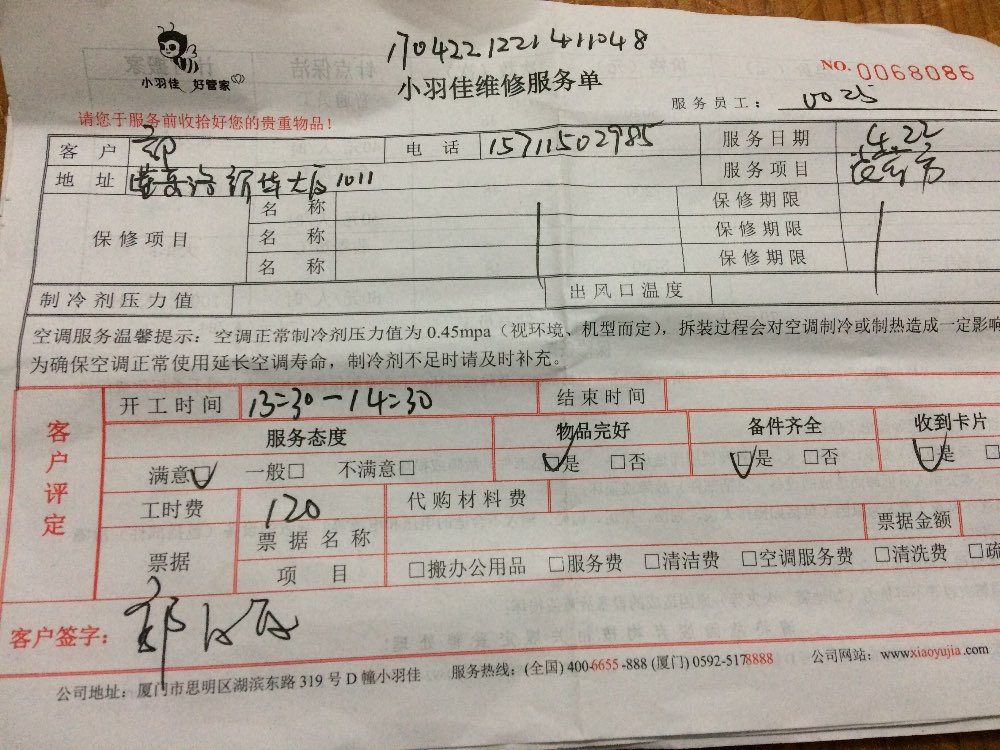 170422122141048
小羽佳 好管家
小羽佳维修服务单
NO. 0068086
服务员工： 0025
请您于服务前收拾好您的贵重物品！
客 户 郭 电 话 15711502985 服务日期 4.22
地 址 1011 服务项目
保修项目 名 称 保修期限
名 称 保修期限
名 称 保修期限
制冷剂压力值 出风口温度
空调服务温馨提示：空调正常制冷剂压力值为 0.45mpa（视环境、机型而定），拆装过程会对空调制冷或制热造成一定影响
为确保空调正常使用延长空调寿命，制冷剂不足时请及时补充。
客户评定
开工时间 13:30－14:30 结束时间
服务态度 物品完好 备件齐全 收到卡片
满意☑ 一般□ 不满意□ ☑是 □否 ☑是 □否 ☑是
工时费 120 代购材料费
票据 票据名称 票据金额
项 目 □搬办公用品 □服务费 □清洁费 □空调服务费 □清洗费 □疏
客户签字： 郭
公司地址：厦门市思明区湖滨东路 319 号 D 幢小羽佳 服务热线：(全国) 400-6655-888 (厦门) 0592-5178888 公司网站：www.xiaoyujia.com